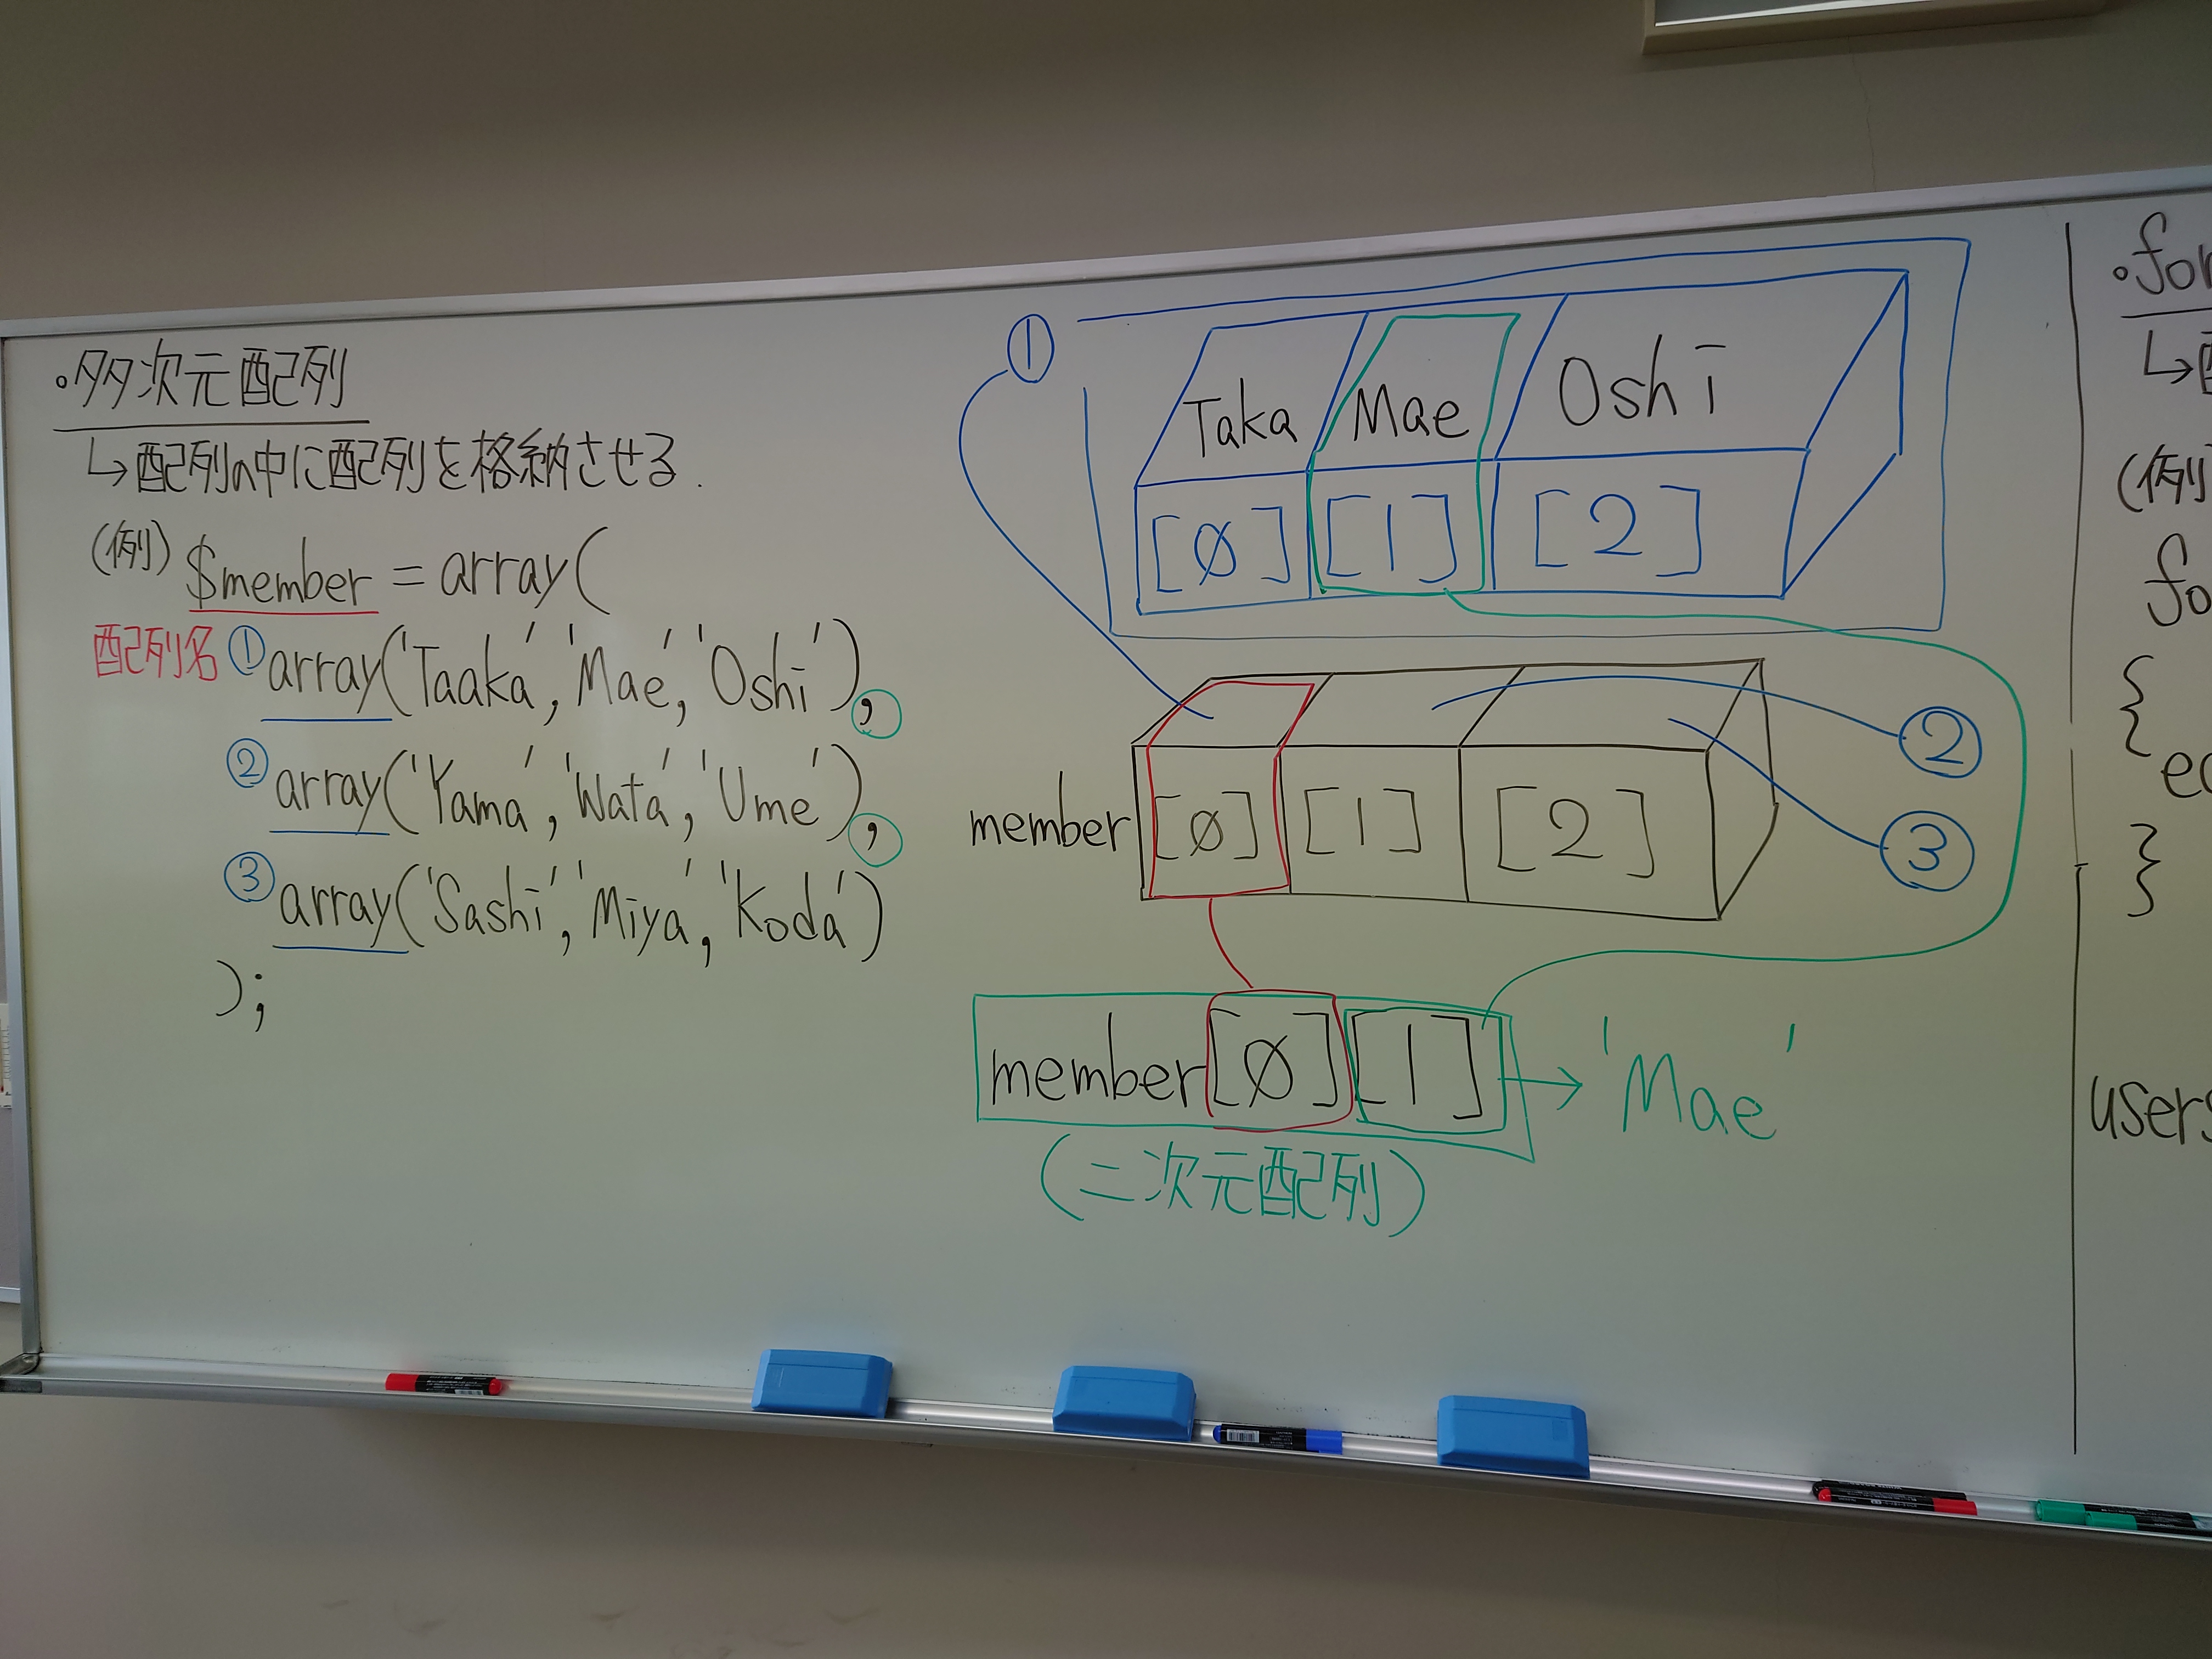 ・多次元配列
↳配列の中に配列を格納させる.
(例) $member = array(
配列名 ① array('Taaka', 'Mae', 'Oshi'),
② array('Yama', 'Wata', 'Ume'),
③ array('Sashi', 'Miya', 'Koda')
);
①
Taka Mae Oshi
[0] [1] [2]
②
③
member [0] [1] [2]
member[0][1] → 'Mae'
(二次元配列)
・for
(例)
fo
{
ec
}
users